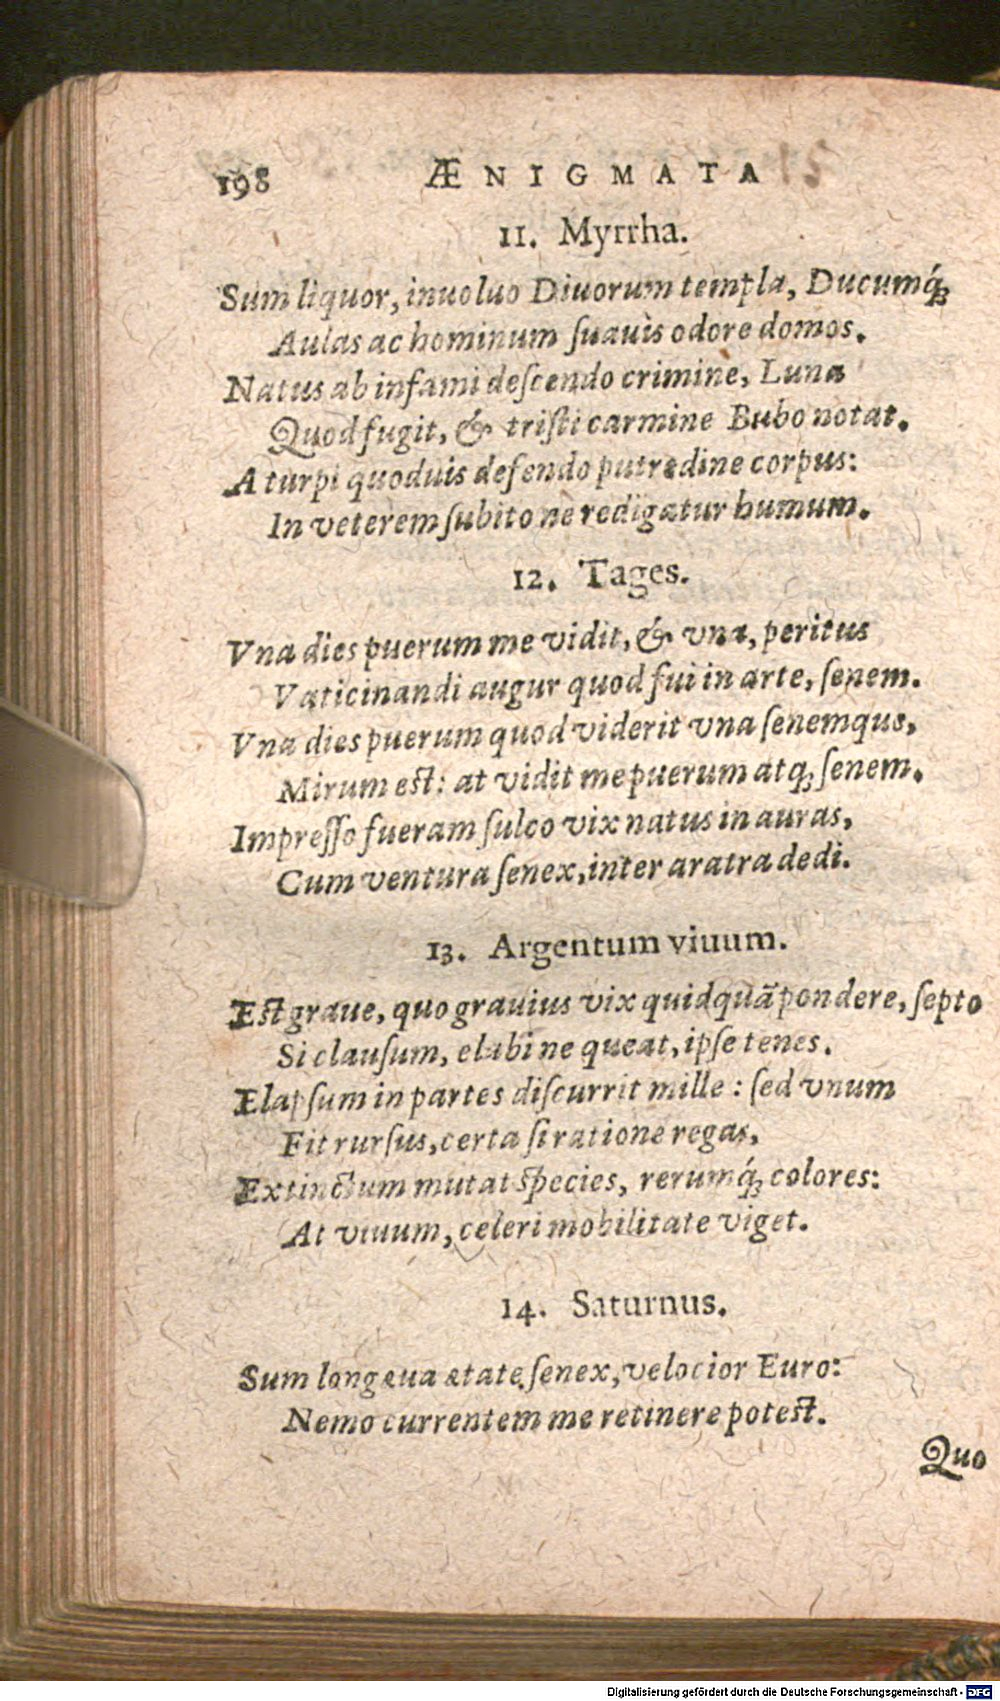 198 ÆNIGMATA
11. Myrrha.
Sum liquor, inuoluo Diuorum templa, Ducumq́ꝫ
Aulas ac hominum ſuauis odore domos.
Natus ab infami deſcendo crimine, Luna
Quod fugit, & triſti carmine Bubo notat.
A turpi quoduis defendo putredine corpus:
In veterem ſubito ne redigatur humum.
12. Tages.
Vna dies puerum me vidit, & vna, peritus
Vaticinandi augur quod fui in arte, ſenem.
Vna dies puerum quod viderit vna ſenemque,
Mirum eſt: at vidit me puerum atqꝫ ſenem.
Impreſſo fueram ſulco vix natus in auras,
Cum ventura ſenex, inter aratra dedi.
13. Argentum viuum.
Eſt graue, quo grauius vix quidquã pondere, ſepto
Si clauſum, elabi ne queat, ipſe tenes.
Elapſum in partes diſcurrit mille: ſed vnum
Fit rurſus, certa ſi ratione regas,
Extinctum mutat ſpecies, rerumq́ꝫ colores:
At viuum, celeri mobilitate viget.
14. Saturnus.
Sum longæua ætate ſenex, velocior Euro:
Nemo currentem me retinere poteſt.
Quo
Digitalisierung gefördert durch die Deutsche Forschungsgemeinschaft - DFG